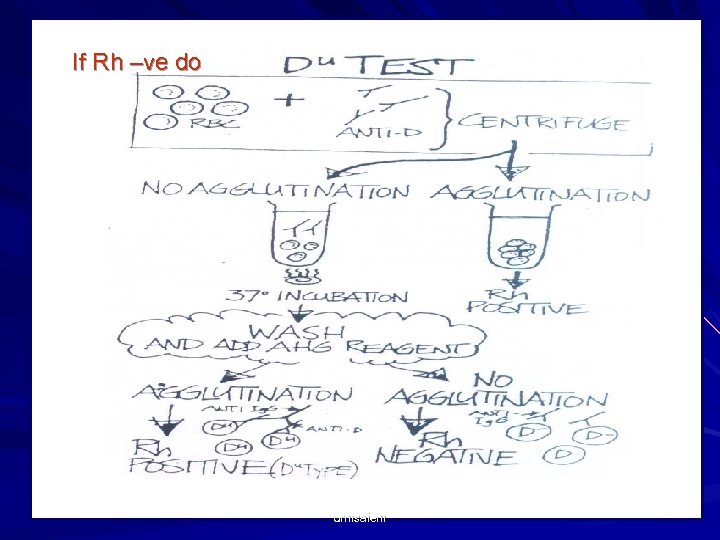 If Rh –ve do
Du TEST
+
RBC
ANTI-D
CENTRIFUGE
NO AGGLUTINATION
AGGLUTINATION
37° INCUBATION
Rh
POSITIVE
WASH
AND ADD AHG REAGENT
AGGLUTINATION
NO
AGGLUTINATION
ANTI IgG
ANTI-D
Du
Du
Du
Rh
POSITIVE (Du TYPE)
ANTI-
IgG
D-
D-
D
Rh
NEGATIVE